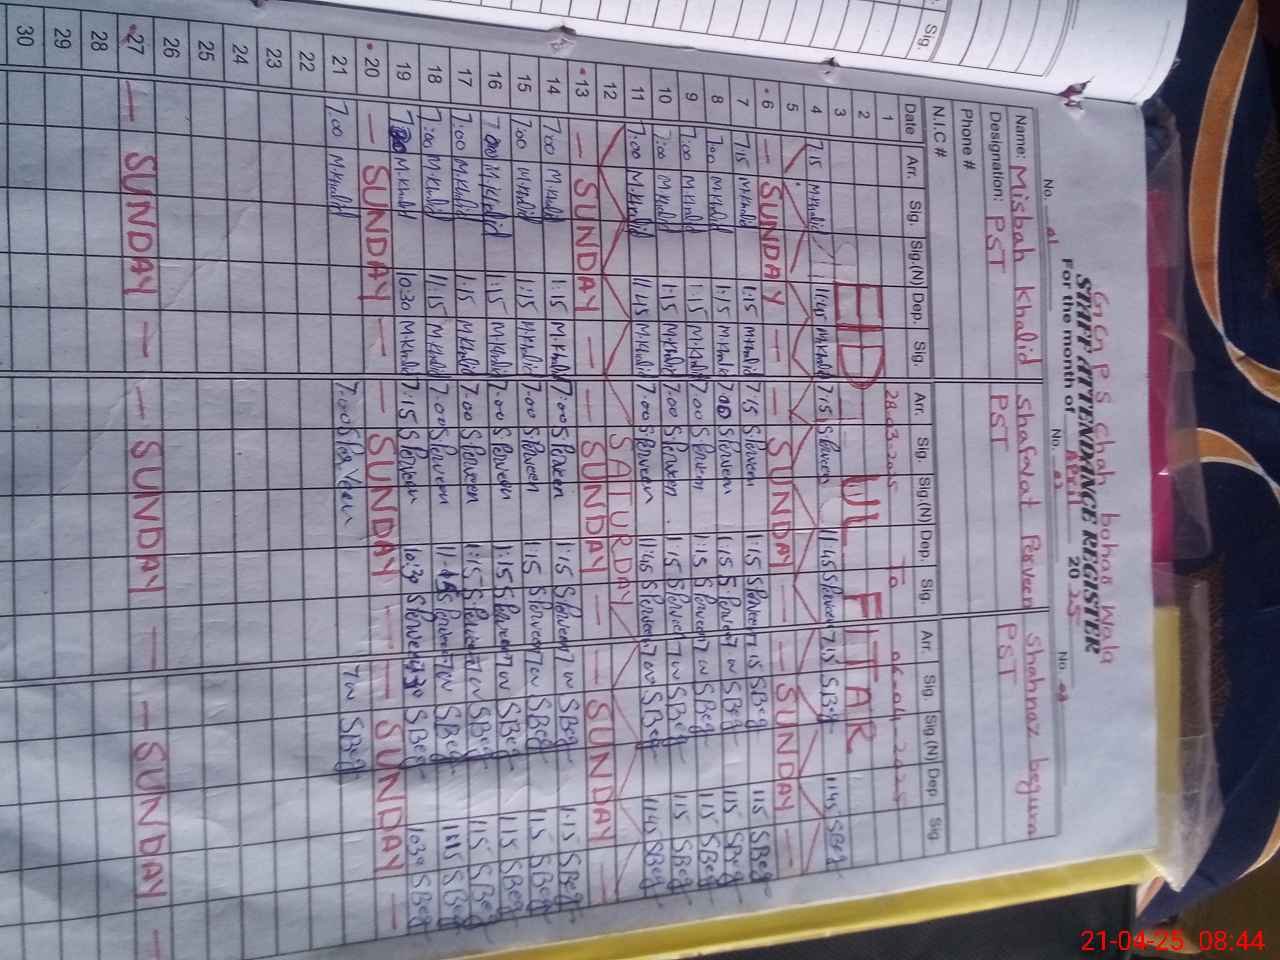 Sig.
GGPS chah bohar wala
STAFF ATTENDANCE REGISTER
For the month of April 2025
No. 01 No. 02 No. 03
Name: Misbah Khalid Shafaat Perveen Shahnaz begum
Designation: PST PST PST
Phone #
N.I.C #
Date Arr. Sig. Sig.(N) Dep. Sig. Arr. Sig. Sig.(N) Dep. Sig. Arr. Sig. Sig.(N) Dep. Sig.
1 28.03.2025 To 06-04-2025
2 EID UL FITAR
3
4 7:15 M.Khalid 11:45 M.Khalid 7:15 S Perveen 11:45 S Perveen 7:15 SBeg 11:45 SBeg
5
6 — SUNDAY — — SUNDAY — — SUNDAY —
7 7:15 M.Khalid 1:15 M.Khalid 7:15 S Perveen 1:15 S Perveen 7:15 SBeg 1:15 SBeg
8 7:00 M.Khalid 1:15 M.Khalid 7:00 S Perveen 1:15 S Perveen 7:00 SBeg 1:15 SBeg
9 7:00 M.Khalid 1:15 M.Khalid 7:00 S Perveen 1:15 S Perveen 7:00 SBeg 1:15 SBeg
10 7:00 M.Khalid 1:15 M.Khalid 7:00 S Perveen 1:15 S Perveen 7:00 SBeg 1:15 SBeg
11 7:00 M.Khalid 11:45 M.Khalid 7:00 S Perveen 11:45 S Perveen 7:00 SBeg 11:45 SBeg
12 SATURDAY
13 — SUNDAY — — SUNDAY — — SUNDAY —
14 7:00 M.Khalid 1:15 M.Khalid 7:00 S Perveen 1:15 S Perveen 7:00 SBeg 1:15 SBeg
15 7:00 M.Khalid 1:15 M.Khalid 7:00 S Perveen 1:15 S Perveen 7:00 SBeg 1:15 SBeg
16 7:00 M.Khalid 1:15 M.Khalid 7:00 S Perveen 1:15 S Perveen 7:00 SBeg 1:15 SBeg
17 7:00 M.Khalid 1:15 M.Khalid 7:00 S Perveen 1:15 S Perveen 7:00 SBeg 1:15 SBeg
18 7:00 M.Khalid 11:15 M.Khalid 7:00 S Perveen 11:15 S Perveen 7:00 SBeg 11:15 SBeg
19 M.Khalid 10:30 M.Khalid 7:15 S Perveen 10:30 S Perveen 7:30 SBeg 10:30 SBeg
20 — SUNDAY — — SUNDAY — — SUNDAY —
21 7:00 M.Khalid 7:00 S Perveen 7:00 SBeg
22
23
24
25
26
27 — SUNDAY — — SUNDAY — — SUNDAY —
28
29
30
21-04-25 08:44